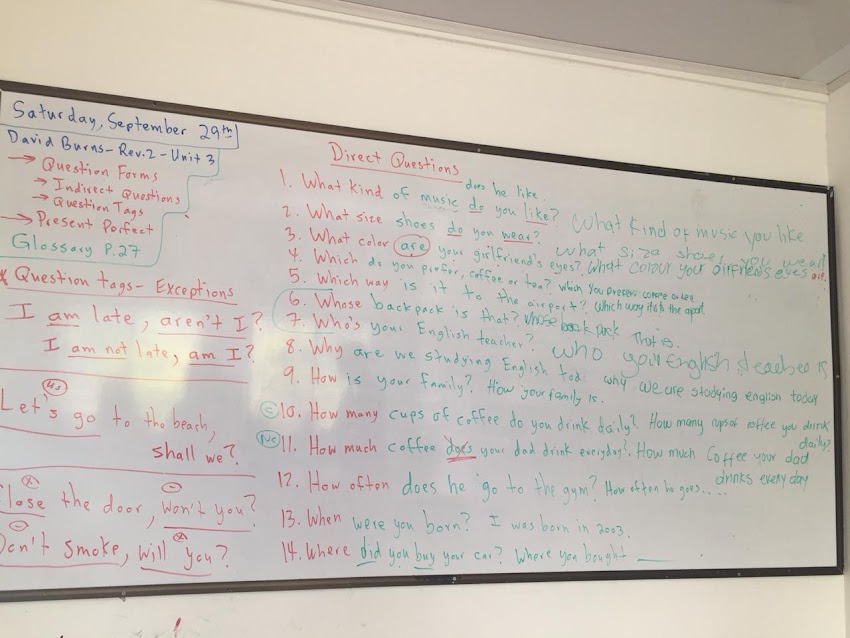 Saturday, September 29th
David Burns - Rev. 2 - Unit 3
→ Question Forms
→ Indirect Questions
→ Question Tags
→ Present Perfect
Glossary P.27
* Question tags - Exceptions
I am late, aren't I?
I am not late, am I?
us
Let's go to the beach,
shall we?
Close the door, won't you?
Don't smoke, will you?
Direct Questions
does he like
1. What kind of music do you like? What kind of music you like
2. What size shoes do you wear? What size shoes you wear
3. What color are your girlfriend's eyes? What colour your girlfriends eyes are.
4. Which do you prefer, coffee or tea? which you prefers coffee or tea
5. Which way is it to the airport? which way it is to the
6. Whose backpack is that? whose back pack That is.
7. Who's your English teacher? who your English teacher is
8. Why are we studying English tod why we are studying english today
9. How is your family? How your family is.
C 10. How many cups of coffee do you drink daily? How many cups of coffee you drink
daily?
NC 11. How much coffee does your dad drink everyday? How much Coffee your dad
drinks every day
12. How often does he go to the gym? How often he goes....
13. When were you born? I was born in 2003.
14. Where did you buy your car? Where you bought ____